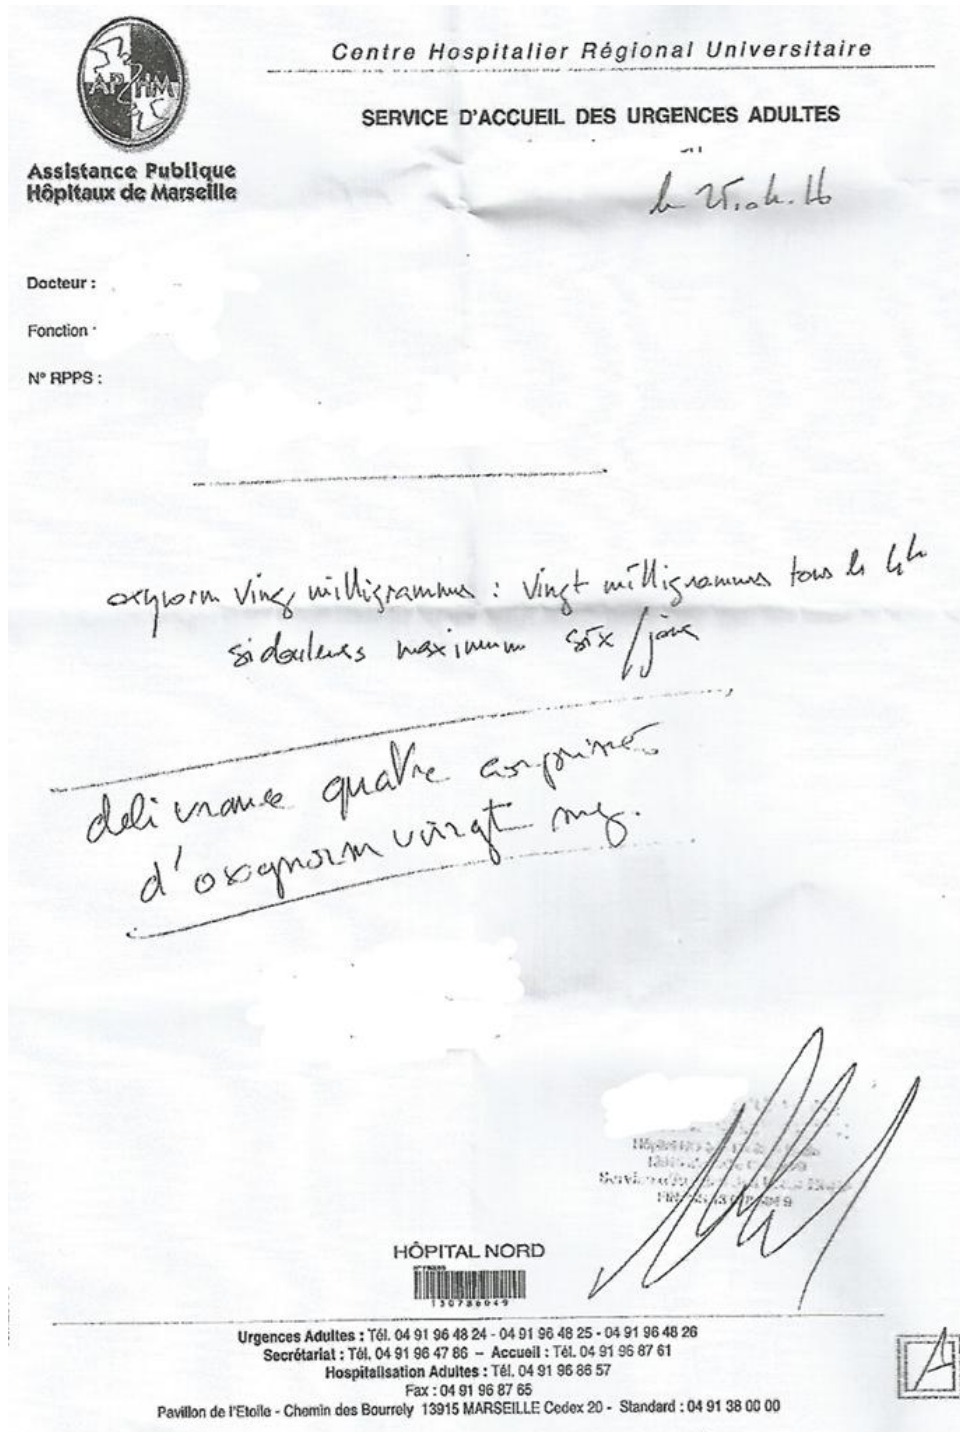 AP HM
Assistance Publique
Hôpitaux de Marseille
Centre Hospitalier Régional Universitaire
SERVICE D'ACCUEIL DES URGENCES ADULTES
le 25.04.16
Docteur :
Fonction
N° RPPS :
oxynorm ving milligrammes : vingt milligrammes tous les 4h
si douleurs maximum six / jour
delivrance quatre comprimés
d'oxynorm vingt mg.
HÔPITAL NORD
130786049
Urgences Adultes : Tél. 04 91 96 48 24 - 04 91 96 48 25 - 04 91 96 48 26
Secrétariat : Tél. 04 91 96 47 86 – Accueil : Tél. 04 91 96 87 61
Hospitalisation Adultes : Tél. 04 91 96 86 57
Fax : 04 91 96 87 65
Pavillon de l'Etoile - Chemin des Bourrely 13915 MARSEILLE Cedex 20 - Standard : 04 91 38 00 00